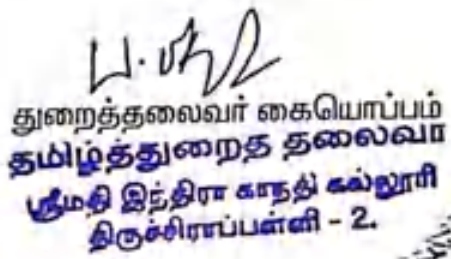 துறைத்தலைவர் கையொப்பம்
தமிழ்த்துறைத தலைவா
ஸ்ரீமதி இந்திரா காநதி கல்லூரி
திருச்சிராப்பள்ளி - 2.